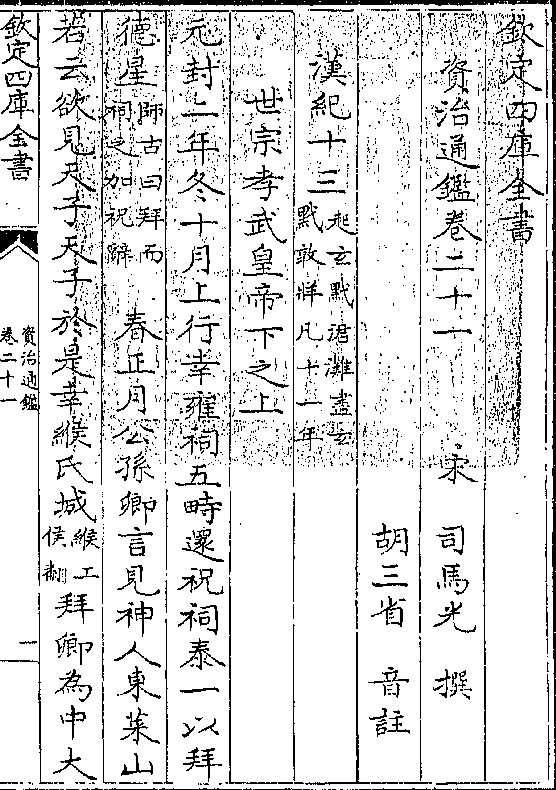 欽定四庫全書
資治通鑑卷二十一
宋 司馬光 撰
胡三省 音註
漢紀十三起玄黓涒灘盡玄黓敦牂凡十一年
世宗孝武皇帝下之上
元封二年冬十月上行幸雍祠五畤還祝祠泰一以拜
德星師古曰拜而祠之加祝辭 春正月公孫卿言見神人東萊山
若云欲見天子天子於是幸緱氏城緱工侯翻拜卿為中大
欽定四庫全書
資治通鑑
卷二十一
一